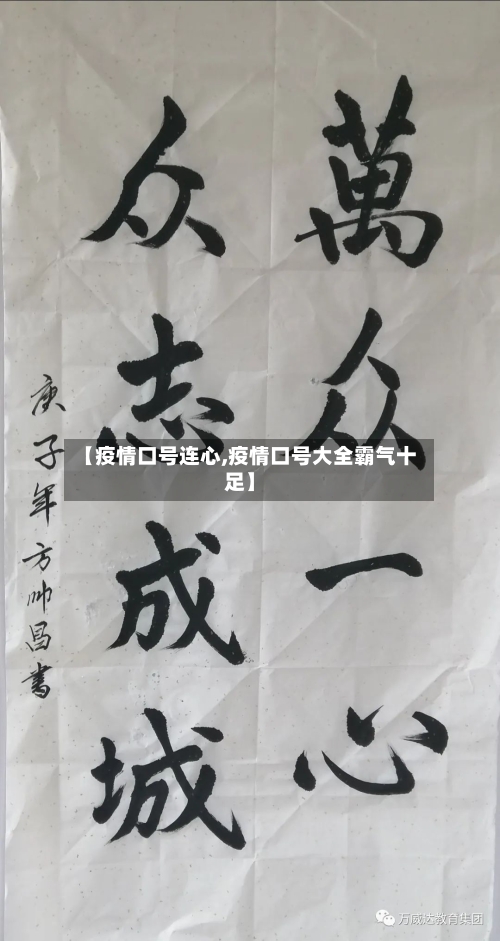 萬众一心
众志成城
庚子年方帅昌书
【疫情口号连心,疫情口号大全霸气十
足】
万威达教育集团